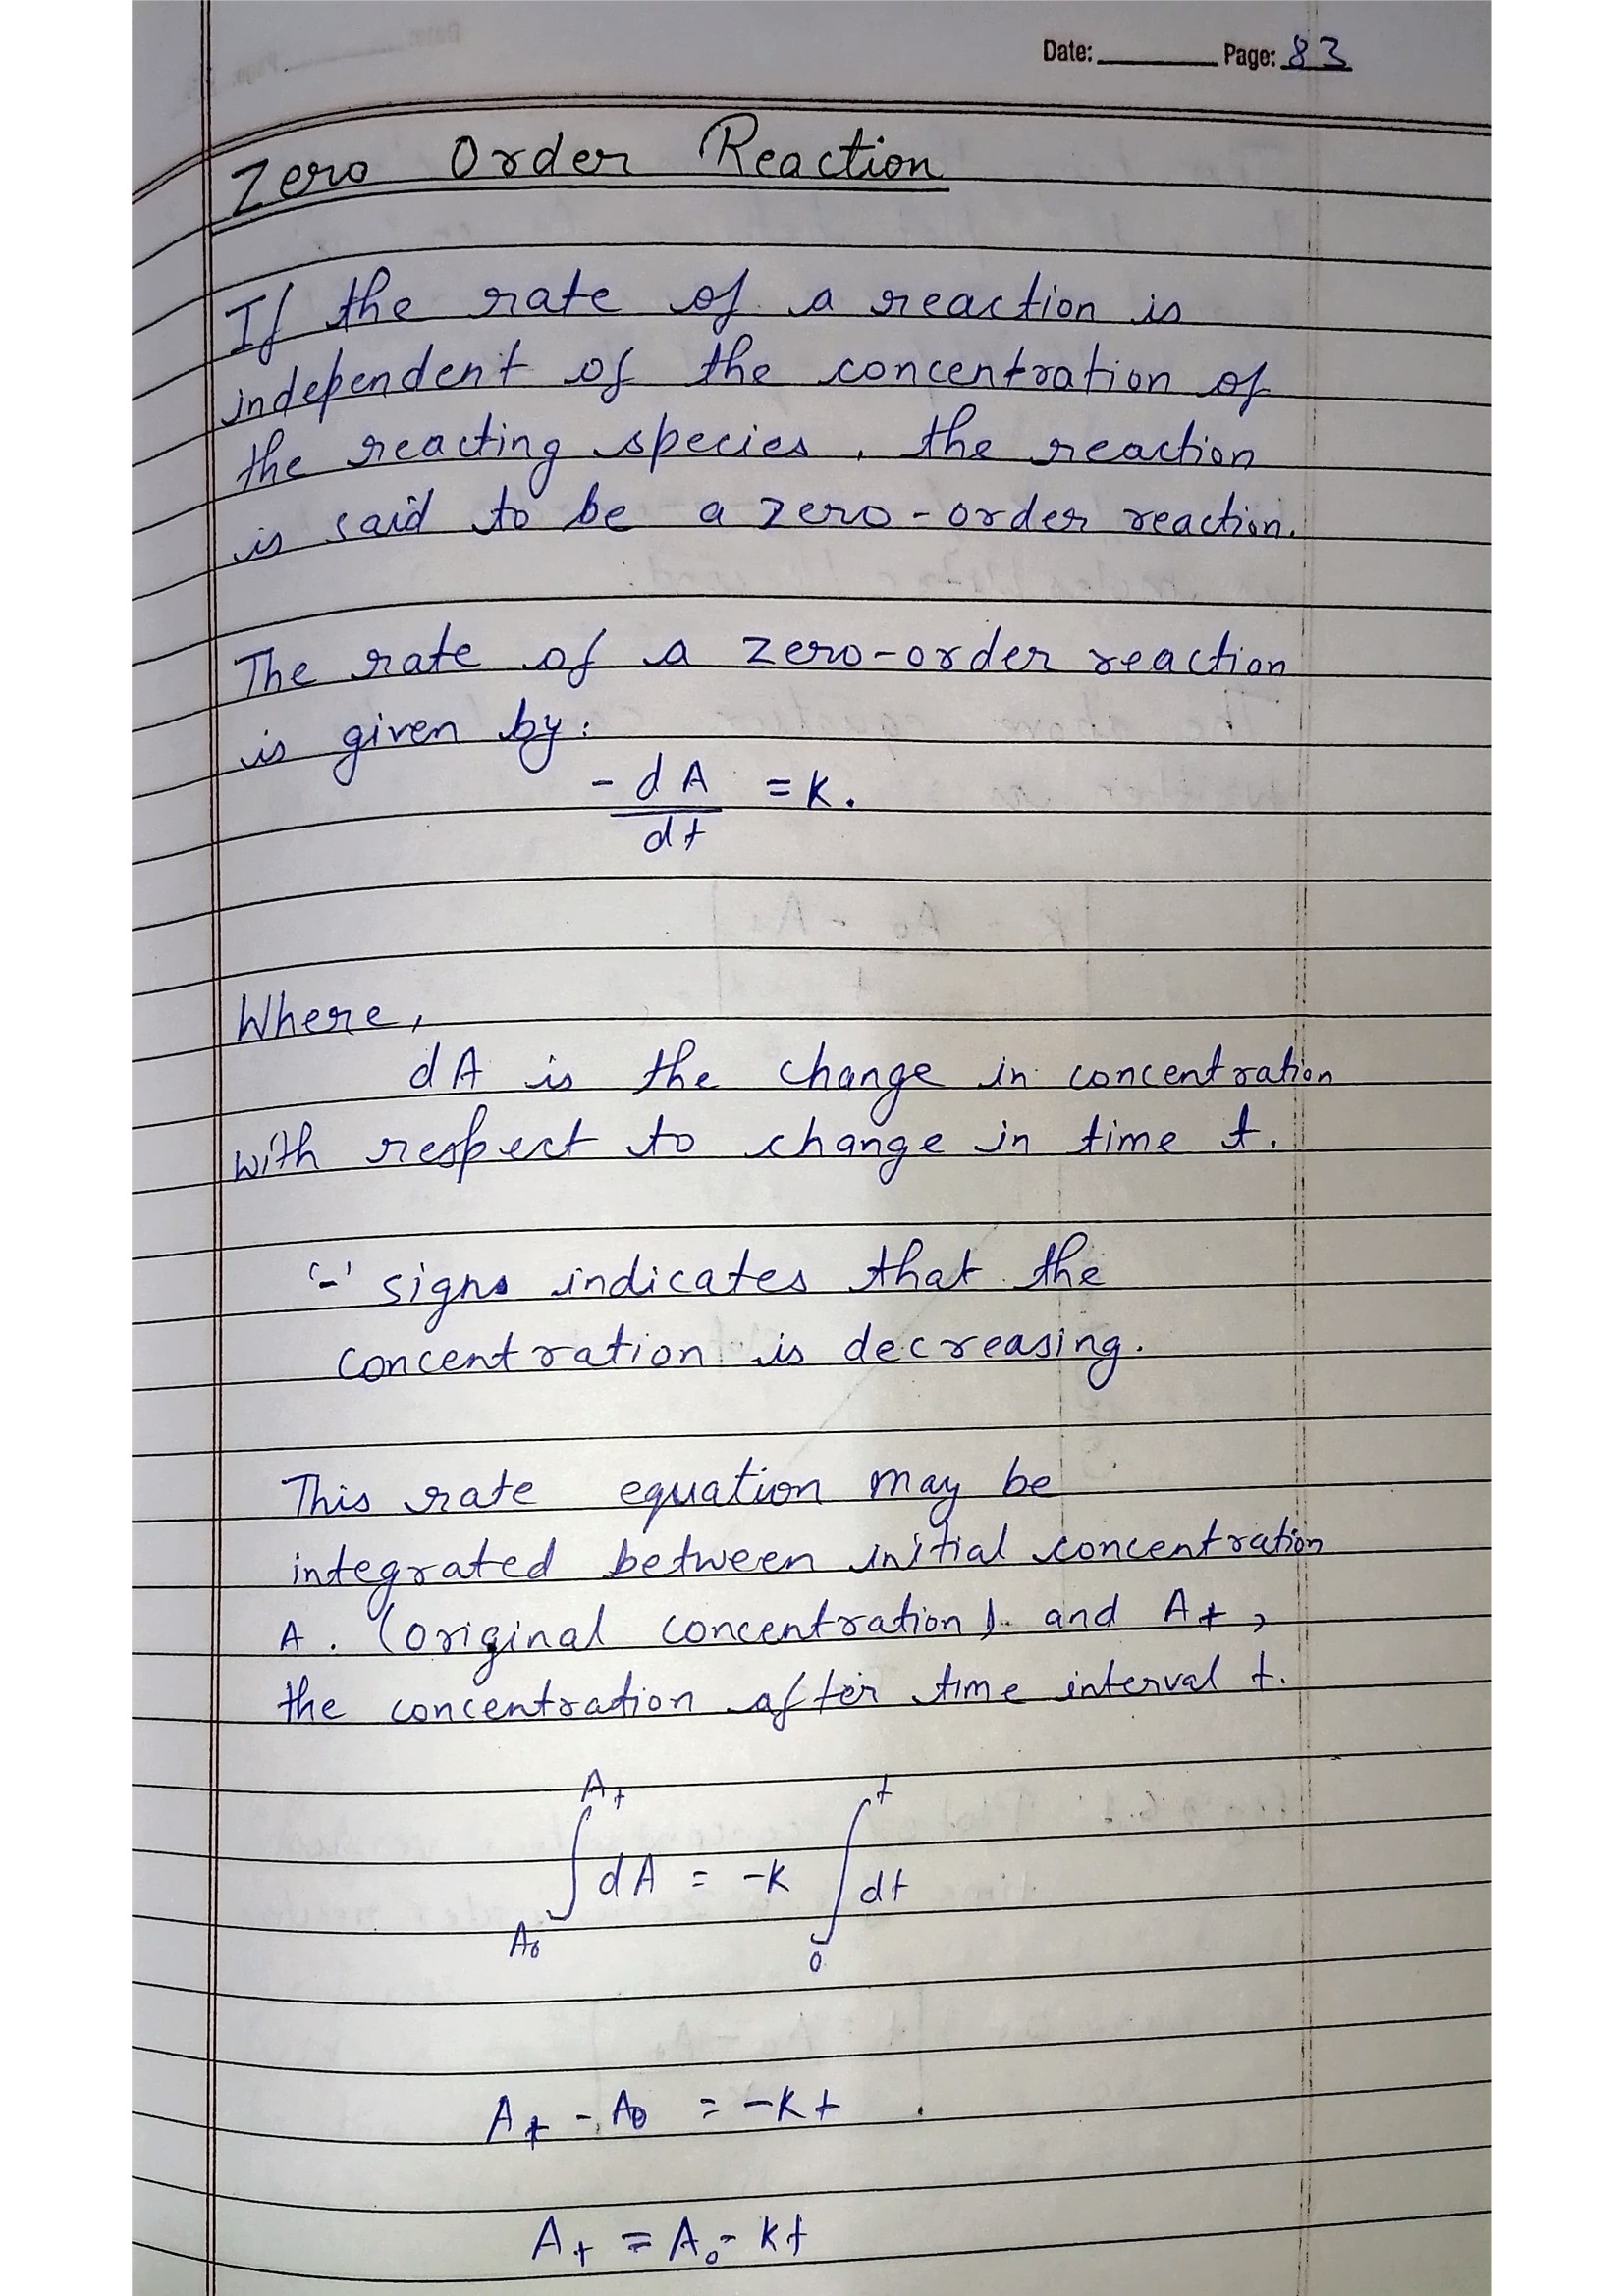 Date: ________ Page: 83
Zero Order Reaction
If the rate of a reaction is
independent of the concentration of
the reacting species, the reaction
is said to be a zero-order reaction.
The rate of a zero-order reaction
is given by:
- dA = K.
dt
Where,
dA is the change in concentration
with respect to change in time t.
'-' signs indicates that the
concentration is decreasing.
This rate equation may be
integrated between initial concentration
A. (original concentration). and At,
the concentration after time interval t.
At t
∫dA = -K ∫dt
A0 0
At - A0 = -Kt
At = A0 - Kt